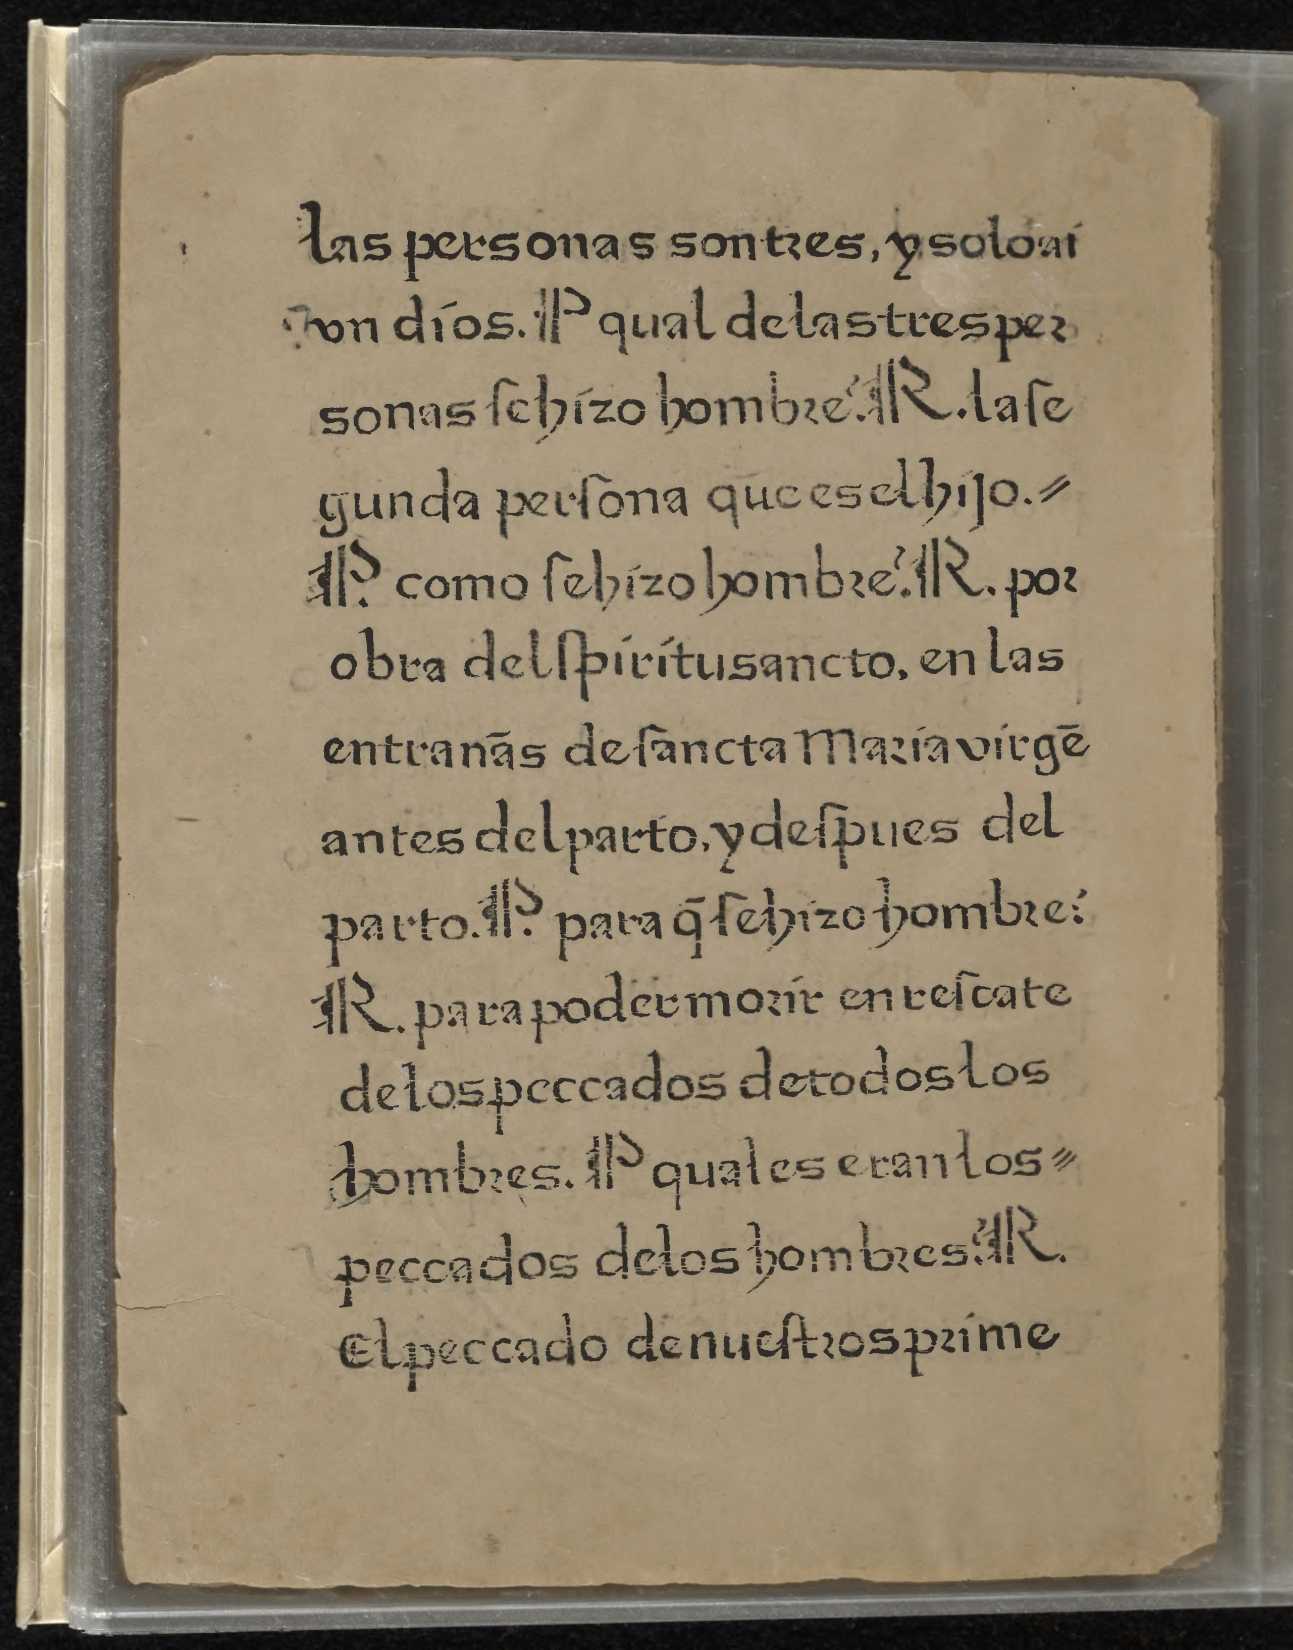 las personas son tres, y solo ai
vn dios. P qual de las tres per
sonas ſe hizo hombre? R. la ſe
gunda perſona que es el hijo.⸗
P. como ſe hizo hombre? R. por
obra del ſpiritu sancto, en las
entranãs de ſancta Maria virgẽ
antes del parto, y deſpues del
parto. P. para q̃ ſe hizo hombre?
R. para poder morir en reſcate
de los peccados de todos los
hombres. P quales eran los⸗
peccados de los hombres? R.
El peccado de nueſtros prime